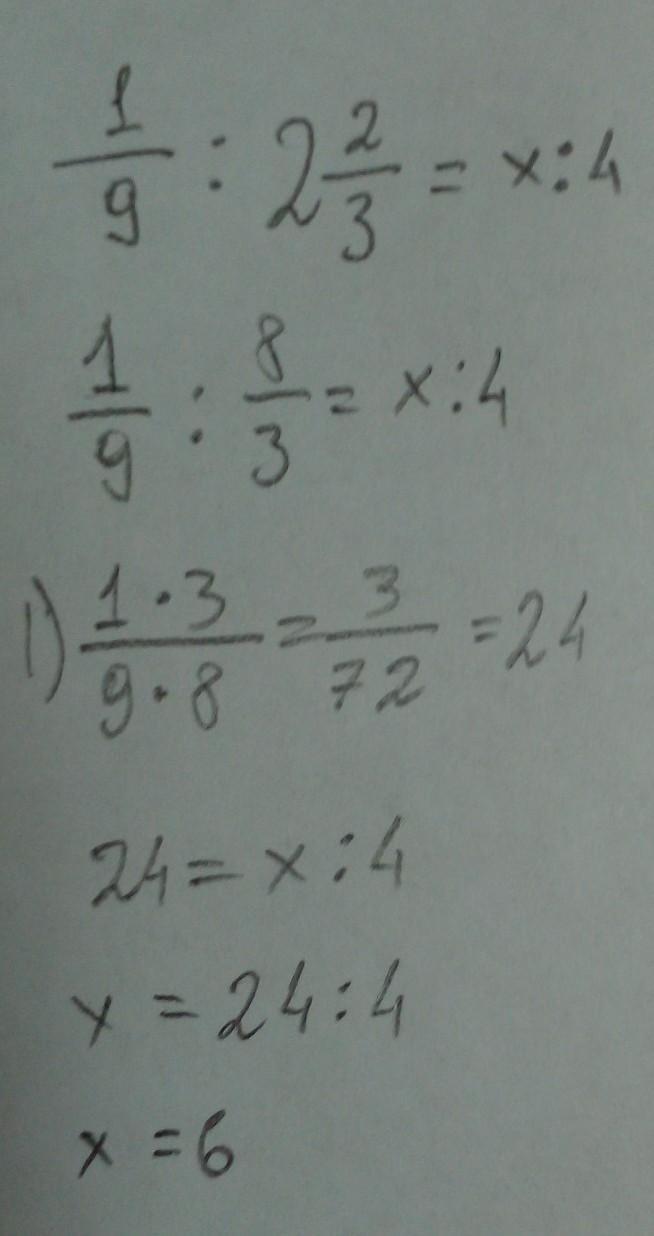 1/9 : 2 2/3 = x : 4
1/9 : 8/3 = x : 4
1) 1·3/9·8 = 3/72 = 24
24 = x : 4
x = 24 : 4
x = 6